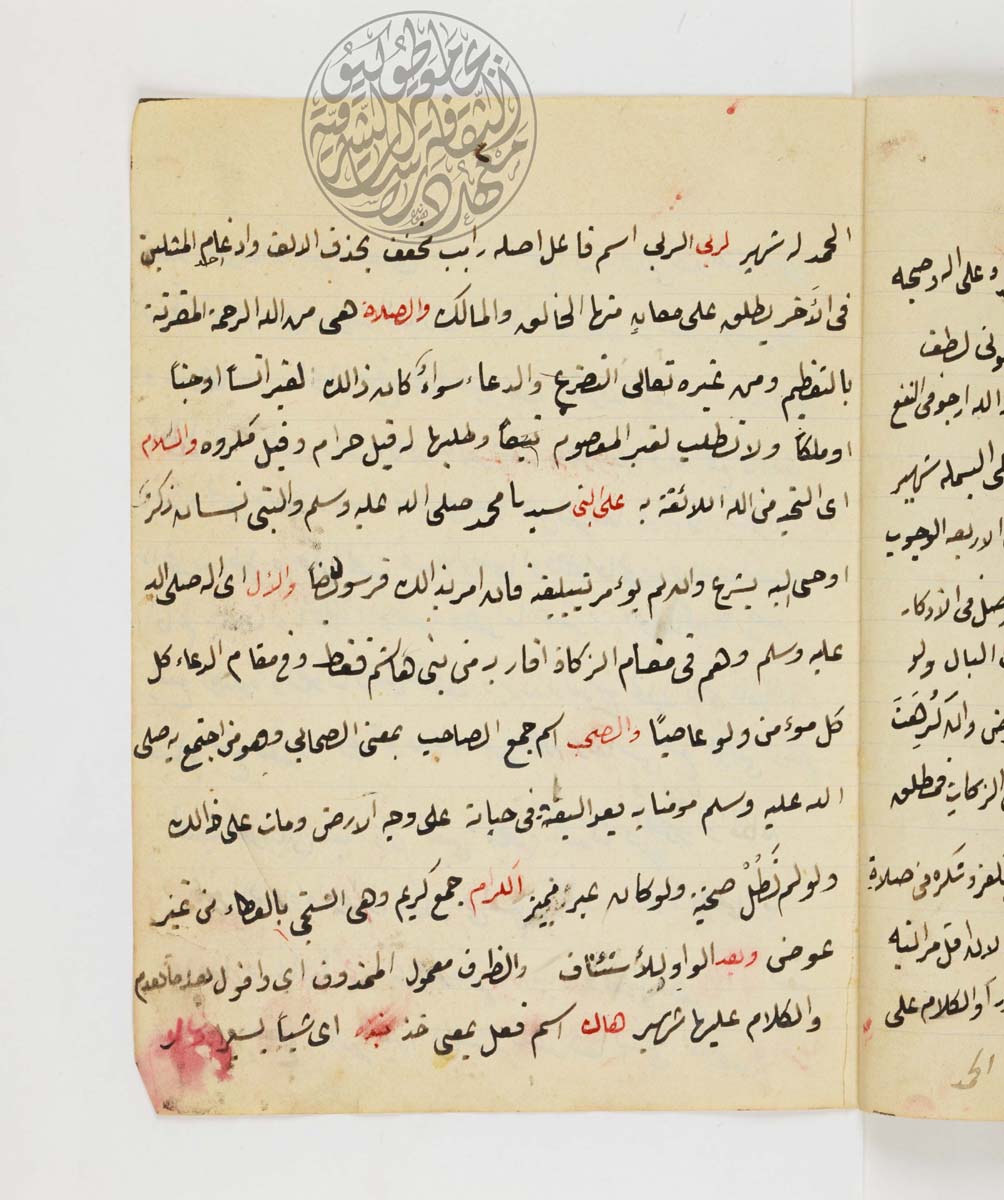 ٢
الحمد له شهير لربي الرب اسم فاعل اصله رابب تخفف بحذف الالف وادغام احد المثلين
فى الآخر يطلق على معان منها الخالق والمالك والصلاة هى من الله الرحمة المقرنة
بالتعظيم ومن غيره تعالى التضرع والدعاء سواء كان ذالك لغير انساً اوجناً
اوملكاً ولا تطلب لغير المعصوم تبعاً وطلبها له قيل حرام وقيل مكروه والسلام
اى التحية من الله اللائقة به على النبى سيدنا محمد صلى الله عليه وسلم والنبى انسان ذكر
اوحى اليه بشرع وان لم يوءمر بتبليغه فان امر بذالك فرسول ايضاً والال اى اله صلى الله
عليه وسلم وهم فى مقام الزكاة اقاربه من بنى هاشم فقط وفى مقام الدعاء كل
كل موءمن ولو عاصياً والصحب اسم جمع الصاحب بمعنى الصحابي وهو من اجتمع به صلى
الله عليه وسلم مومنا به بعد البعثة فى حياته على وجه الارض ومات على ذالك
ولو لم تَطُلْ صحبته ولو كان غير مميز الكرام جمع كريم وهى السخى بالعطاء من غير
عوض وبعد الواو للأستئناف والظرف معمول المحذوف اى واقول بعد ما تقدم
والكلام عليها شهير هاك اسم فعل بمعنى خذ نبذه اى شيأ يسيرا
وعلى اله وصحبه
لطف
الله ارجو فى النفع
البسملة شهير
الاربعه الوجوب
فى الاذكار
البال ولو
وان كُرِهَتَ
فمطلق
وشكره من صلاة
لانه اقل مرتبه
والكلام على
الحمد